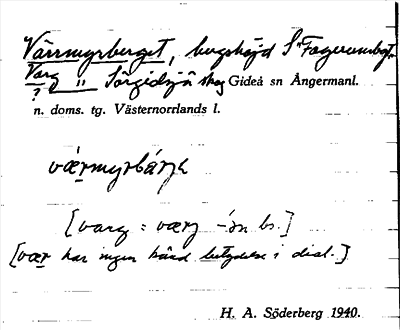 Värrmyrberget, bergshöjd S
Varg " Sörgidsjö skog Gideå sn Ångermanl.
?
n. doms. tg. Västernorrlands l.
væ̀rmyrbárjə
[varg : værj -´n bs.]
[vær har ingen känd betydelse i dial.]
H. A. Söderberg 1940.